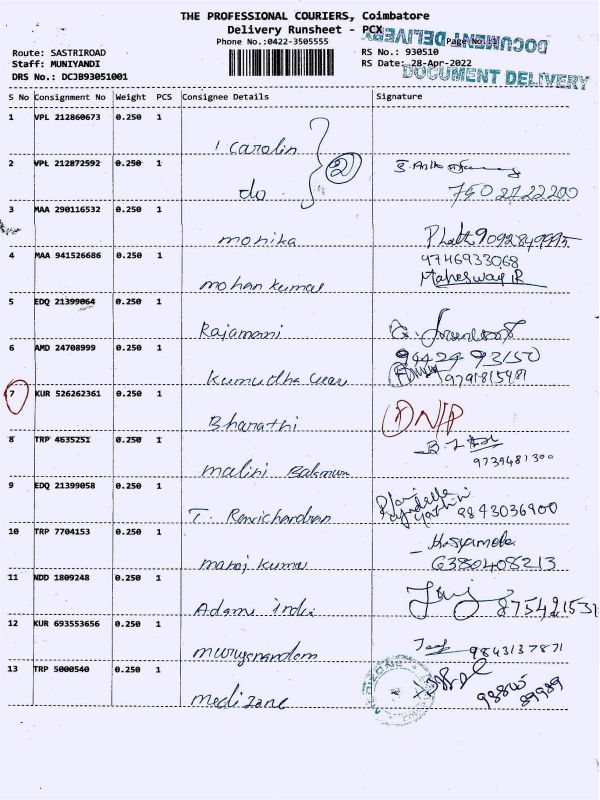 THE PROFESSIONAL COURIERS, Coimbatore
Delivery Runsheet - PCX
Phone No.:0422-3505555
DOCUMENT DELIVERY
Route: SASTRIROAD
Staff: MUNIYANDI
DRS No.: DCJB93051001
RS No.: 930510
RS Date: 28-Apr-2022
DOCUMENT DELIVERY
S No Consignment No Weight PCS Consignee Details Signature
1 VPL 212860673 0.250 1
carolin
2 VPL 212872592 0.250 1
2
do 7502722200
3 MAA 290116532 0.250 1
monika
4 MAA 941526686 0.250 1 9746933068
mohan kumar Maheswari R
5 EDQ 21399064 0.250 1
Rajamani
6 AMD 24708999 0.250 1 94424 93150
Kumudha 9791815481
7 KUR 526262361 0.250 1
Bharathi
8 TRP 4635251 0.250 1
malini 9739481300
9 EDQ 21399058 0.250 1
T. Ravichandran 9843036900
10 TRP 7704153 0.250 1
manoj kumar 6380408213
11 NDD 1809248 0.250 1
Adams india
12 KUR 693553656 0.250 1
muruganandam 9843137871
13 TRP 5000540 0.250 1
medizone